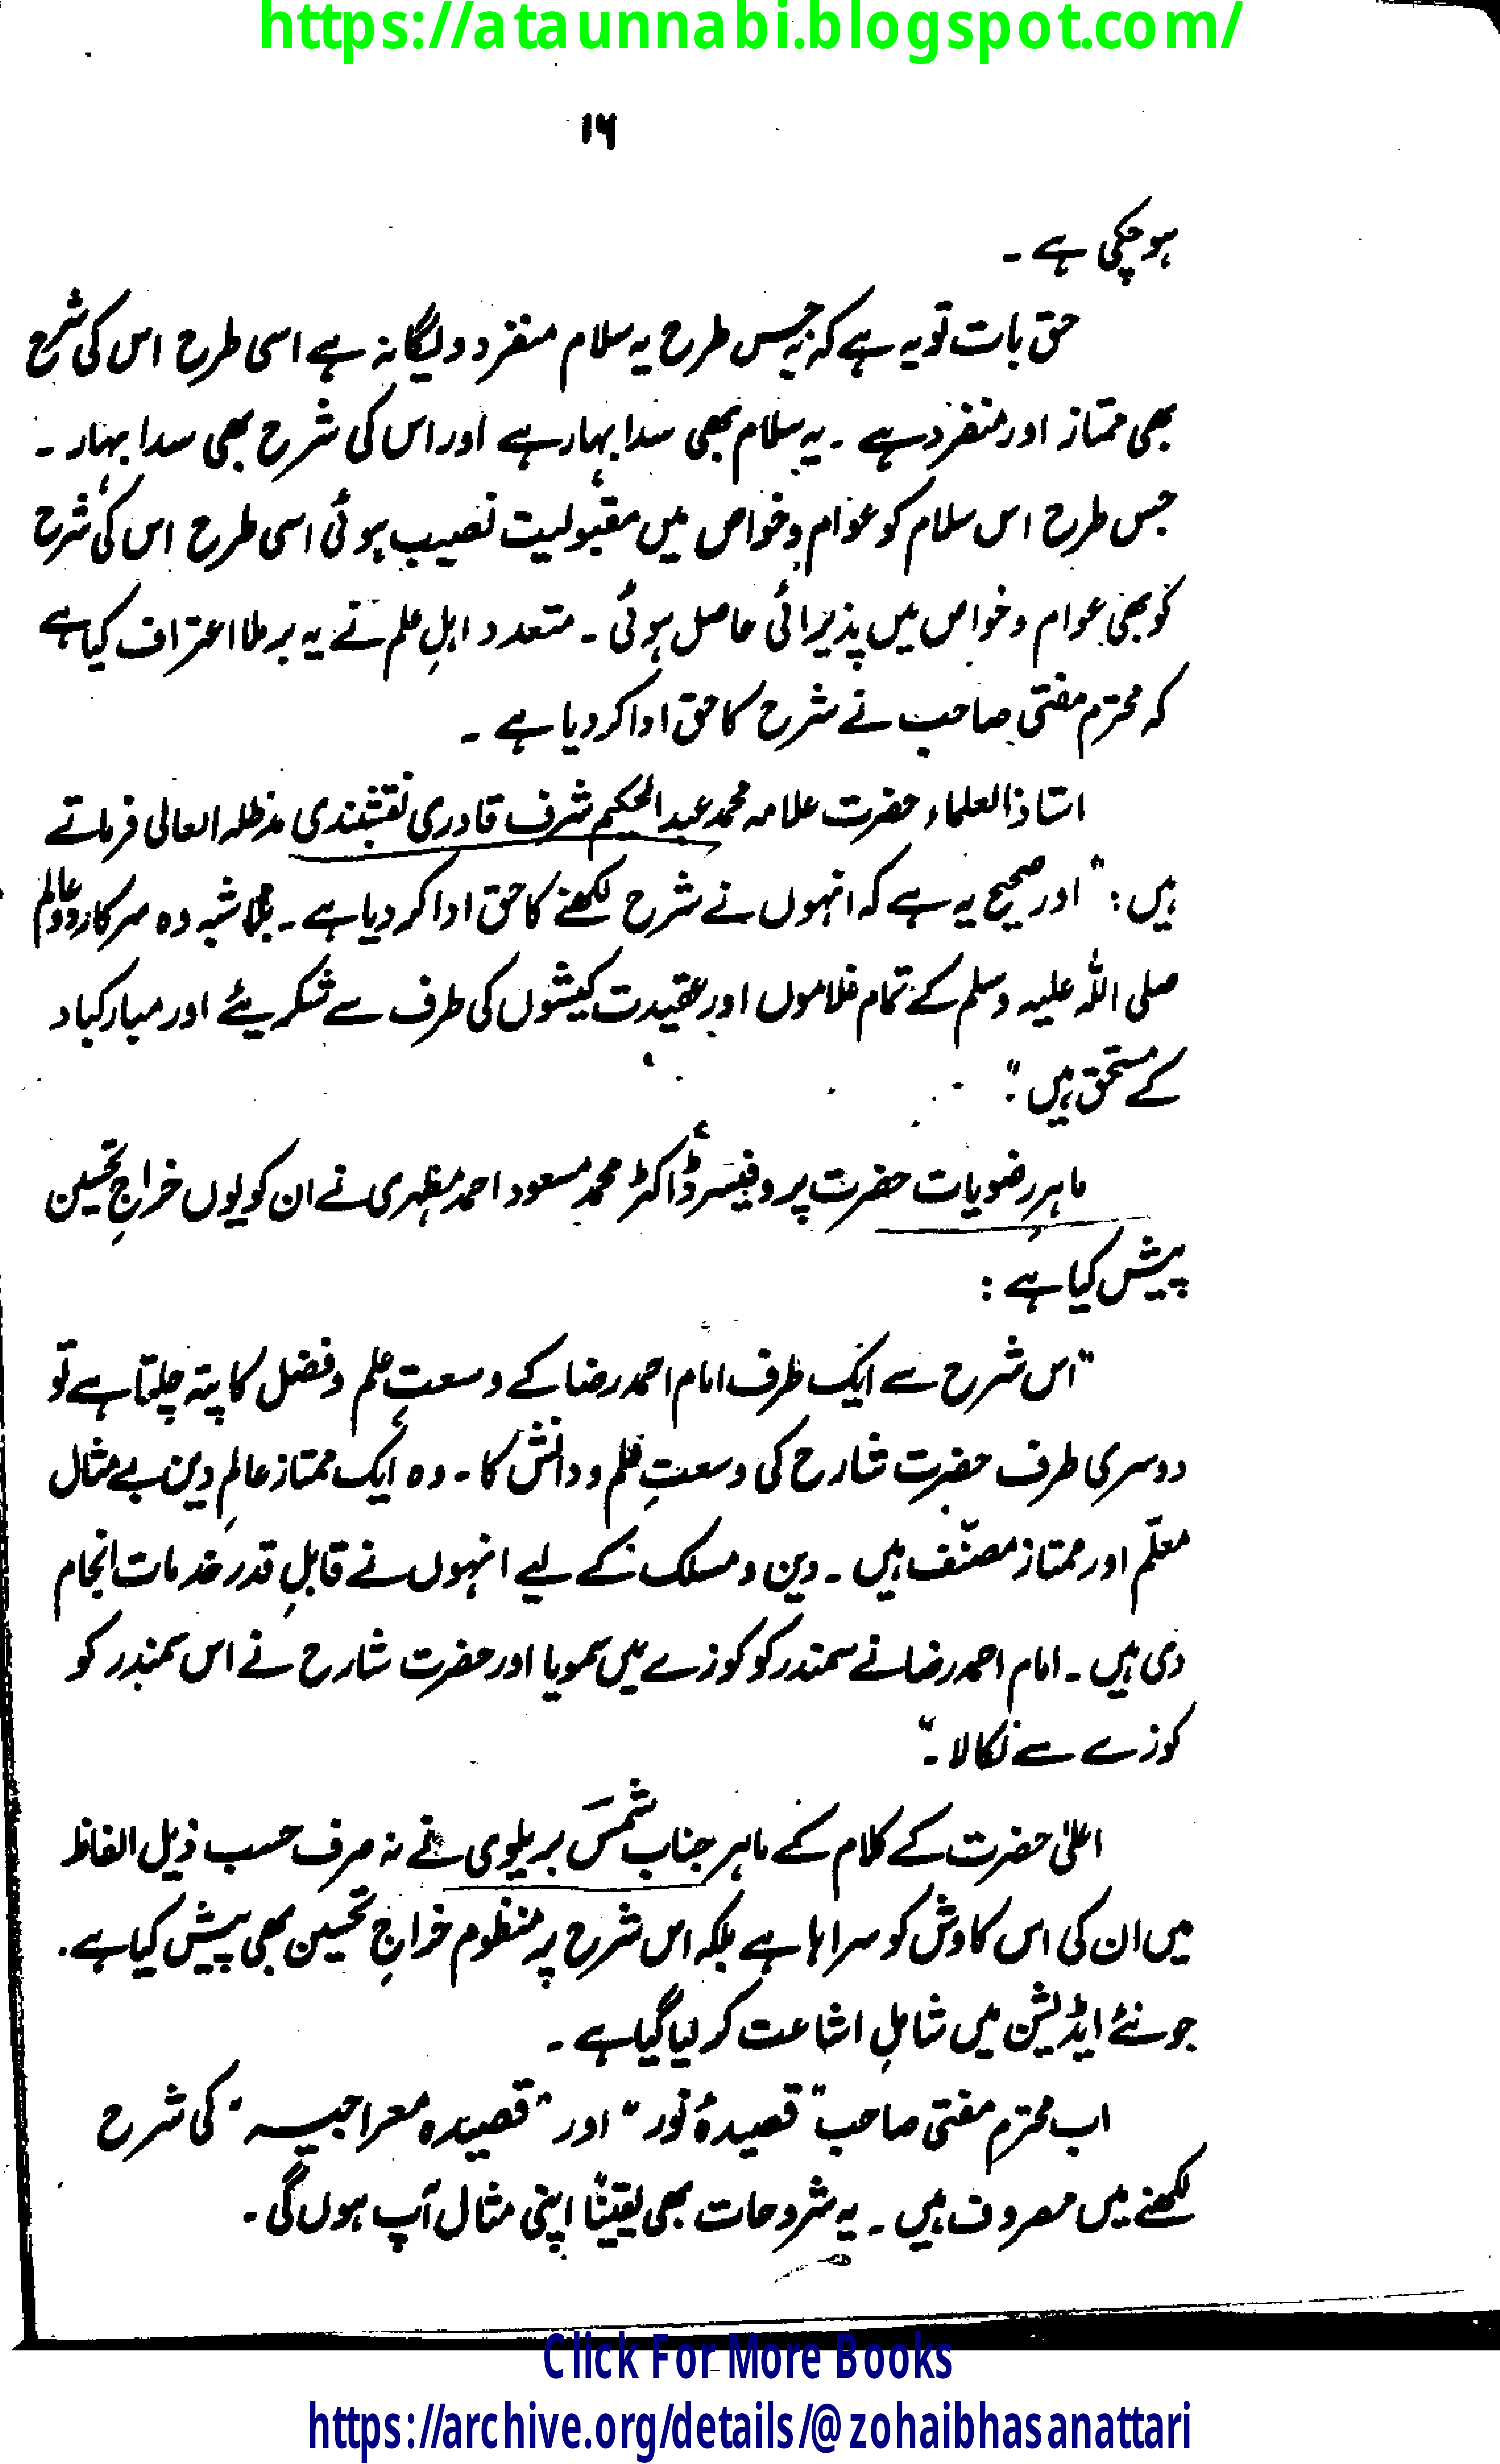 https://ataunnabi.blogspot.com/
۱۶
ہوچکی ہے ۔
حق بات تو یہ ہے کہ جس طرح یہ سلام منفرد و یگانہ ہے اسی طرح اس کی شرح
بھی ممتاز اور منفرد ہے ۔ یہ سلام بھی سدا بہار ہے اور اس کی شرح بھی سدا بہار ۔
جس طرح اس سلام کو عوام و خواص میں مقبولیت نصیب ہوئی اسی طرح اس کی شرح
کو بھی عوام و خواص میں پذیرائی حاصل ہوئی ۔ متعدد اہلِ علم نے یہ برملا اعتراف کیا ہے
کہ محترم مفتی صاحب نے شرح کا حق ادا کر دیا ہے ۔
استاذ العلماء حضرت علامہ محمد عبدالحکیم شرف قادری نقشبندی مدظلہ العالی فرماتے
ہیں : "اور صحیح یہ ہے کہ انہوں نے شرح لکھنے کا حق ادا کر دیا ہے ۔ بلاشبہ وہ سرکار دو عالم
صلی اللہ علیہ وسلم کے تمام غلاموں اور عقیدت کیشوں کی طرف سے شکریئے اور مبارکباد
کے مستحق ہیں ۔"
ماہرِ رضویات حضرت پروفیسر ڈاکٹر محمد مسعود احمد مظہری نے ان کو یوں خراجِ تحسین
پیش کیا ہے :
"اس شرح سے ایک طرف امام احمد رضا کے وسعتِ علم و فضل کا پتہ چلتا ہے تو
دوسری طرف حضرت شارح کی وسعتِ علم و دانش کا ۔ وہ ایک ممتاز عالمِ دین بے مثال
معلّم اور ممتاز مصنّف ہیں ۔ دین و مسلک کے لیے انہوں نے قابلِ قدر خدمات انجام
دی ہیں ۔ امام احمد رضا نے سمندر کو کوزے میں سمویا اور حضرت شارح نے اس سمندر کو
کوزے سے نکالا ۔"
اعلیٰ حضرت کے کلام کے ماہر جناب شمس بریلوی نے نہ صرف حسب ذیل الفاظ
میں ان کی اس کاوش کو سراہا ہے بلکہ اس شرح پر منظوم خراجِ تحسین بھی پیش کیا ہے ۔
جو نئے ایڈیشن میں شاملِ اشاعت کر لیا گیا ہے ۔
اب محترم مفتی صاحب "قصیدۂ نور" اور "قصیدہ معراجیہ" کی شرح
لکھنے میں مصروف ہیں ۔ یہ شروحات بھی یقیناً اپنی مثال آپ ہوں گی ۔
Click For More Books
https://archive.org/details/@zohaibhasanattari